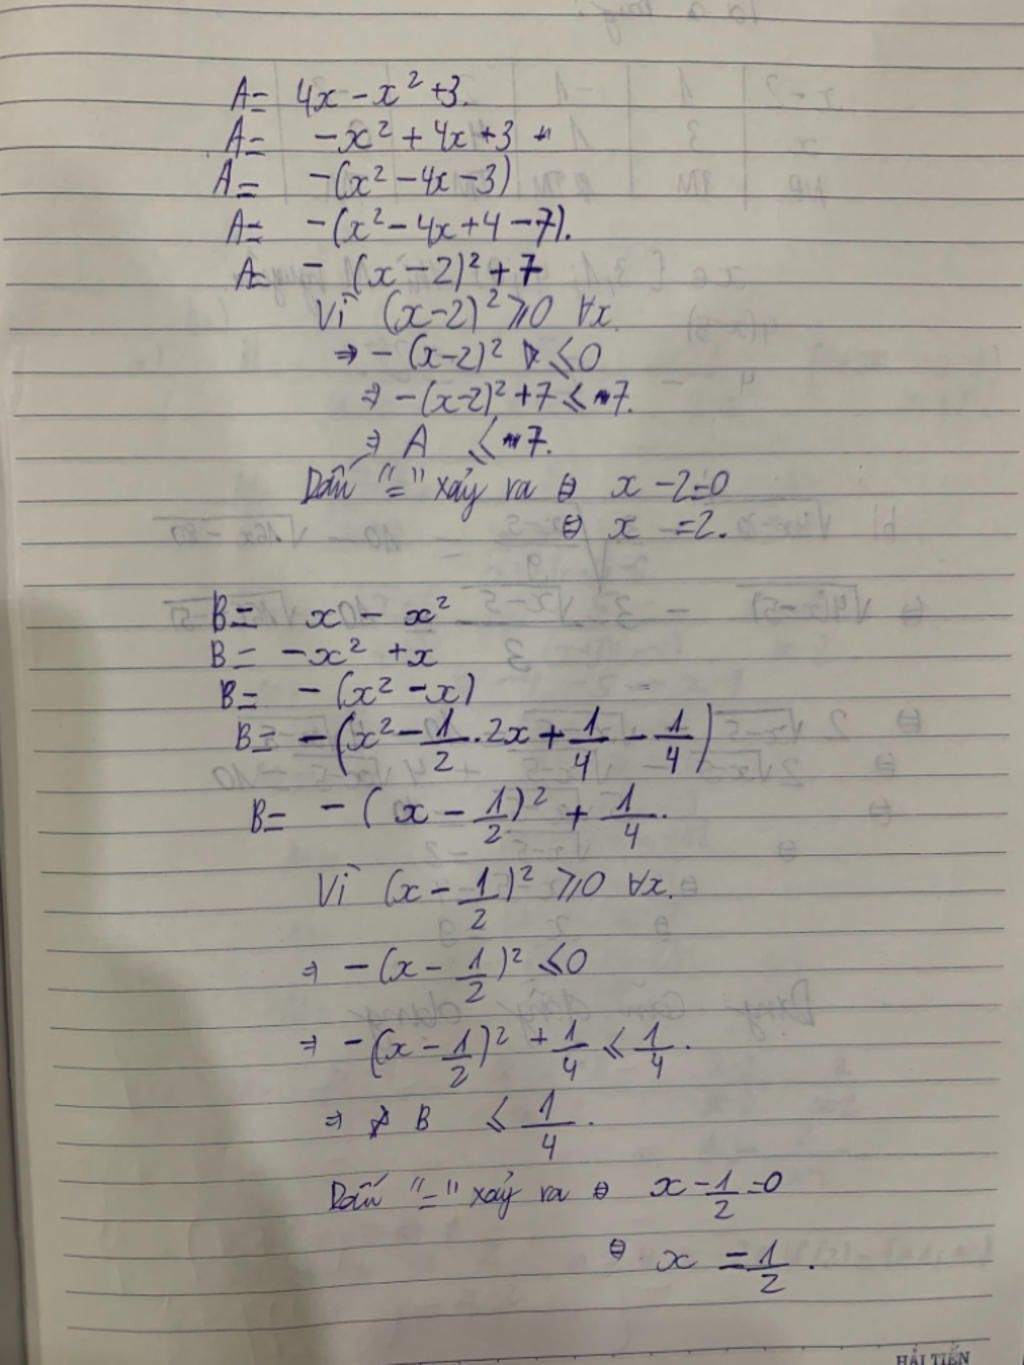 A= 4x - x² + 3.
A= -x² + 4x + 3
A= -(x² - 4x - 3)
A= -(x² - 4x + 4 - 7).
A= - (x - 2)² + 7
Vì (x-2)² ⩾ 0 ∀x.
⇒ - (x-2)² ⩽ 0
⇒ -(x-2)² + 7 ⩽ 7.
⇒ A ⩽ 7.
Dấu "=" xảy ra ⇔ x - 2 = 0
⇔ x = 2.
B= x - x²
B= -x² + x
B= - (x² - x)
B= -(x² - 1/2 . 2x + 1/4 - 1/4)
B= - (x - 1/2)² + 1/4.
Vì (x - 1/2)² ⩾ 0 ∀x.
⇒ -(x - 1/2)² ⩽ 0
⇒ -(x - 1/2)² + 1/4 ⩽ 1/4.
⇒ B ⩽ 1/4.
Dấu "=" xảy ra ⇔ x - 1/2 = 0
⇔ x = 1/2.
HẢI TIẾN